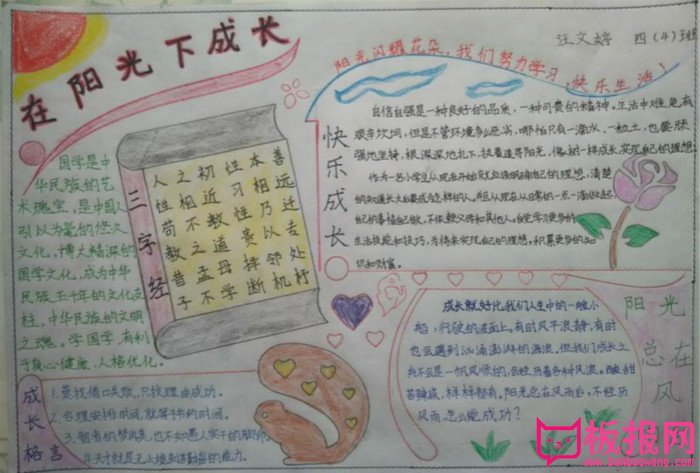 在阳光下成长
汪文婷 四(4)班
阳光闪耀花朵,我们努力学习,快乐生活!
国学是中
华民族的艺
术瑰宝,是中国人
引以为豪的悠久
文化,博大精深的
国学文化,成为中华
民族五千年的文化支
柱,中华民族的文明
之魂。学国学有利
于身心健康,人格优化。
三字经
人之初性本善
性相近习相远
苟不教性乃迁
教之道贵以专
昔孟母择邻处
子不学断机杼
快乐成长
自信自强是一种良好的品质,一种可贵的精神。生活中难免有
艰辛坎坷,但是不管环境多么恶劣,哪怕只有一滴水,一粒土,也要顽
强地坚持,根深深地扎下,执着追寻阳光,像树一样成长,实现自己的理想。
作为一名小学生从现在开始就应该明确自己的理想,清楚
的知道长大后要成为怎样的人,并且从现在从日常的一点一滴做起
自己的事情自己做,不依赖父母和其他人。自觉学习更多的
生活技能和技巧,为将来实现自己的理想,积累更多的知
识和财富。
成长就好比我们人生中的一艘小
船,行驶的海面上。有时风平浪静,有时
也会遇到汹涌澎湃的海浪。但我们成长之
舟不会是一帆风顺的,会经历着各种风浪。酸甜
苦辣咸,样样都有。阳光总在风雨后,不经历
风雨怎么能成功?
阳光总在风
成长格言
1.莫找借口失败,只找理由成功。
2.合理安排时间,就等于节约时间。
3.智者的梦再美,也不如愚人实干的脚印。
4.天才就是无止境刻苦勤奋的能力。
板报网